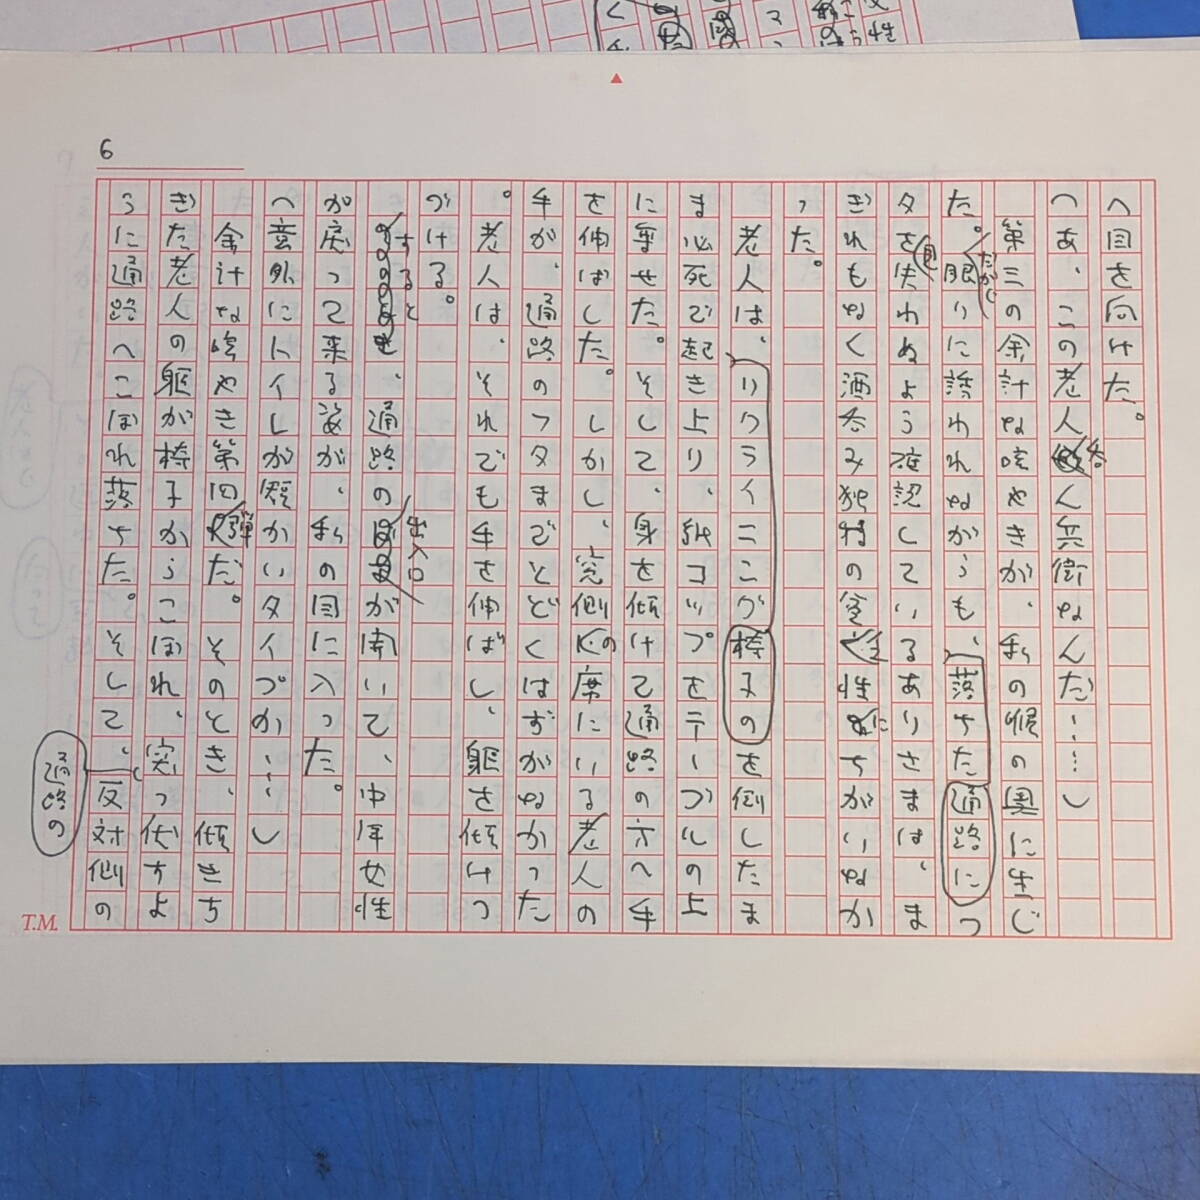 6
へ目を向けた。
〈あ、この老人呑ん兵衛なんだ……〉
第三の余計な呟やきが、私の喉の奥に生じ
た。眠りに誘われながらも、通路に落ちたフ
タを見失わぬよう確認しているありさまは、ま
ぎれもなく酒呑み独特の性にちがいなか
った。
老人は、リクライニング椅子のを倒したま
ま必死で起き上り、紙コップをテーブルの上
に乗せた。そして、身を傾けて通路の方へ手
を伸ばした。しかし、窓側の席にいる老人の
手が、通路のフタまでとどくはずがなかった
。老人は、それでも手を伸ばし、躯を傾けつ
づける。
すると、通路の出入口が開いて、中年女性
が戻って来る姿が、私の目に入った。
〈意外にトイレが短かいタイプか……〉
余計な呟やき第四弾だ。そのとき、傾きす
ぎた老人の躯が椅子からこぼれ、突っ伏すよ
うに通路へこぼれ落ちた。そして、通路の反対側の
T.M.